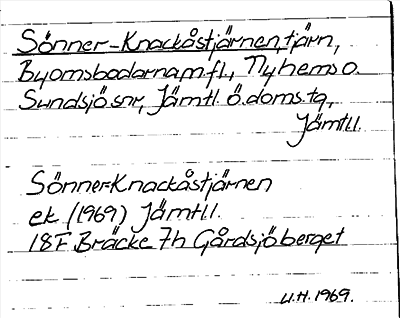 Sönner-Knackåstjärnen, tjärn,
Byomsbodarna m.fl., Nyhems o.
Sundsjö snr, Jämtl. ö. doms. tg,
Jämtl.l.
Sönner-Knackåstjärnen
ek (1969) Jämtl.l.
18F Bräcke 7h Gårdsjöberget
U.H. 1969.